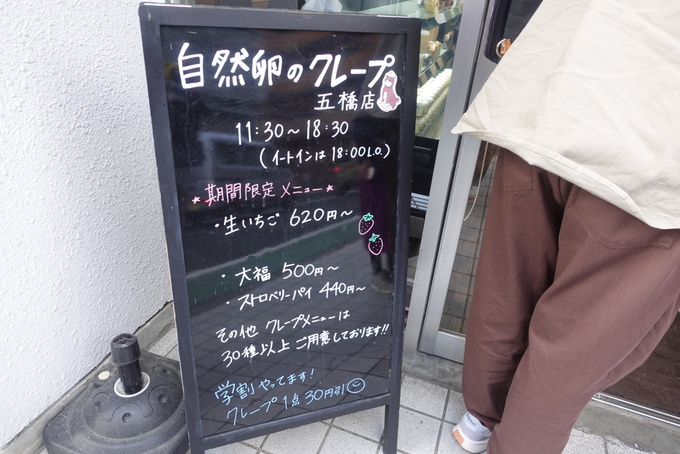 自然卵のクレープ
五橋店
11:30～18:30
(イートインは 18:00L.O.)
★期間限定メニュー★
・生いちご 620円～
・大福 500円～
・ストロベリーパイ 440円～
その他 クレープメニューは
30種以上 ご用意しております!!
学割やってます!
クレープ1点30円引